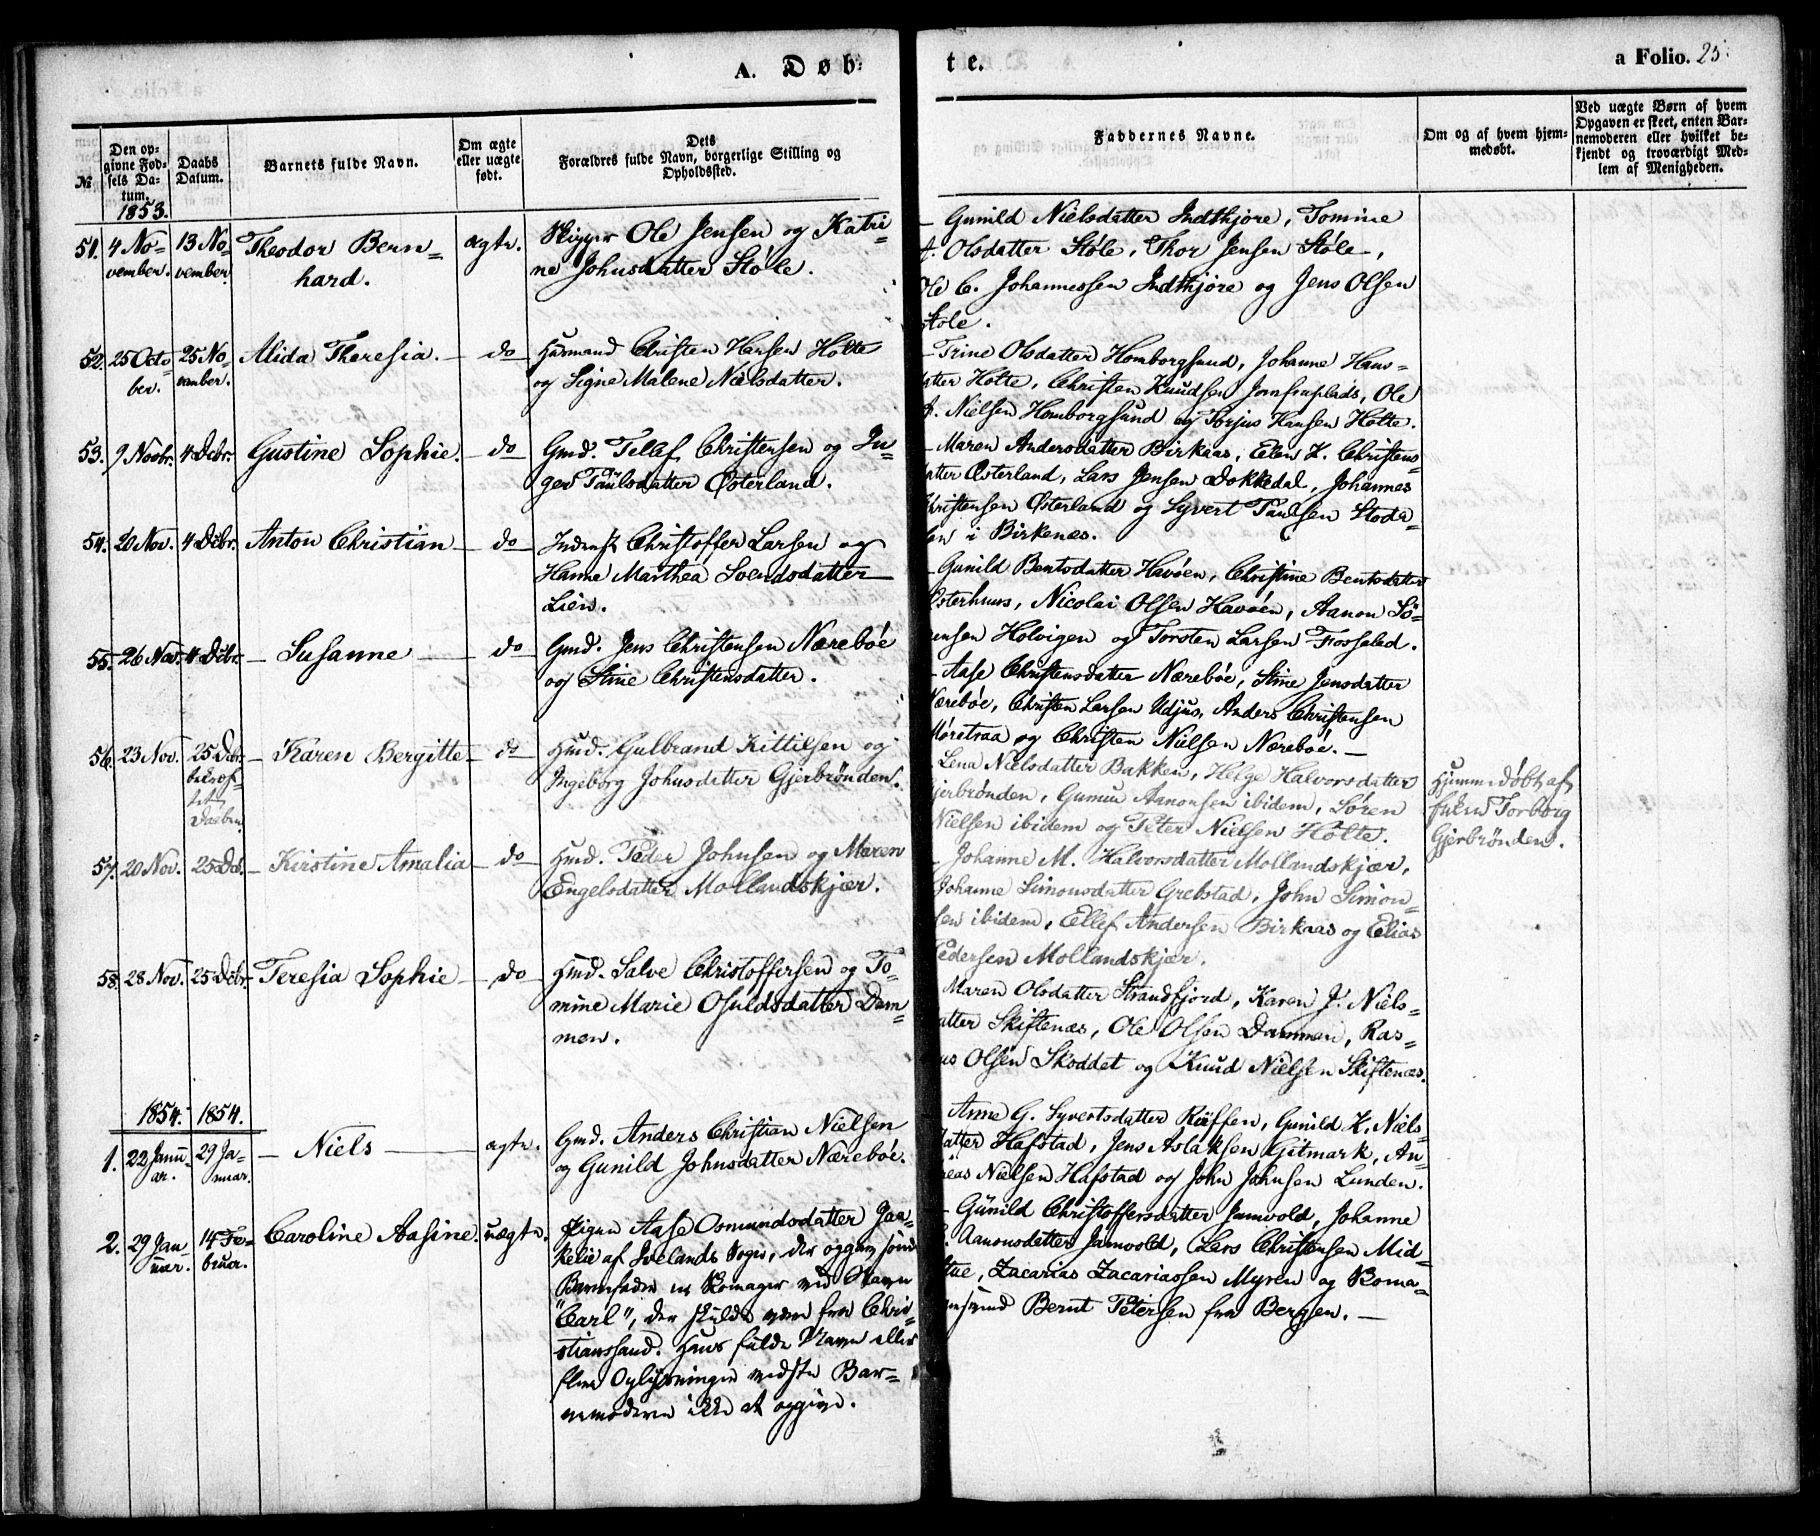 A. Døb-
te.
a Folio. 25.
No
Den op-
givne Fød-
sels Da-
tum.
Daabs
Datum.
Barnets fulde Navn.
Om ægte
eller uægte
født.
Dets
Forældres fulde Navn, borgerlige Stilling og
Opholdssted.
Faddernes Navne.
Om og af hvem hjem-
medøbt.
Ved uægte Børn af hvem
Opgaven er skeet, enten Bar-
nemoderen eller hvilket be-
kjendt og troværdigt Med-
lem af Menigheden.
1853.
51. 4 No-
vember.
13 No-
vember.
Theodor Bern-
hard.
ægte.
Skipper Ole Jensen og Katri-
ne Johnsdatter Støle.
Gunild Nielsdatter Indtkjøre, Tomine
A. Olsdatter Støle, Thor Jensen Støle,
Ole C. Johannessen Indtkjøre og Jens Olsen
Støle.
52. 25 Octo-
ber.
25 No-
vember.
Alida Theresia. do
Husmand Christen Hansen Holte
og Signe Malene Nielsdatter.
Trine Olsdatter Homborgsund, Johanne Hans-
datter Holte, Christen Knudsen Jomfruplads, Ole
A. Nielsen Homborgsund og Torjus Hansen Holte.
53. 9 Novbr. 4 Dcbr. Gustine Sophie. do
Gmd. Tellef Christensen og In-
ger Paulsdatter Østerland.
Maren Andersdatter Birkaas, Elen K. Christens-
datter Østerland, Lars Jensen Dokkedal, Johannes
Christensen Østerland og Syvert Paulsen Stoda-
len i Birkenæs.
54. 20 Nov. 4 Dcbr. Anton Christian do
Inderst Christoffer Larsen og
Hanne Marthea Svendsdatter
Lien.
Gunild Bentsdatter Havøen, Christine Bentsdatter
Østerhuus, Nicolai Olsen Havøen, Aanon Sö-
rensen Holvigen og Torsten Larsen Fosseled.
55. 26 Nov. 4 Dcbr. Susanne do
Gmd. Jens Christensen Nærebøe
og Stine Christensdatter.
Aase Christensdatter Nærebøe, Stine Jensdatter
Nærebøe, Christen Larsen Udjus, Anders Christensen
Møretraa og Christen Nielsen Nærebøe.
56. 23 Nov. 25 Dcbr.
bekræf-
tet
Daaben
Karen Bergitte do
Hmd. Gulbrand Kittilsen og
Ingeborg Johnsdatter Gjerbrønden.
Lena Nielsdatter Bakken, Helge Halvorsdatter
Gjerbrønden, Gumun Aanonsen ibidem, Søren
Nielsen ibidem og Peter Nielsen Holte.
Hjemmedøbt af
Enken Torborg
Gjerbrønden.
57. 20 Nov. 25 Dcb. Kirstine Amalia do
Hmd. Peder Johnsen og Maren
Engelsdatter Mollandskjær.
Johanne M. Halvorsdatter Mollandskjær,
Johanne Simonsdatter Grebstad, John Simon-
sen ibidem, Ellef Andersen Birkaas og Elias
Pedersen Mollandskjær.
58. 28 Nov. 25 Dcbr. Teresia Sophie do
Hmd. Salve Christoffersen og To-
mine Marie Osuldsdatter Dam-
men.
Maren Olsdatter Strandfjord, Karen J. Niels-
datter Skiftenæs, Ole Olsen Dammen, Ras-
mus Olsen Skoddet og Knud Nielsen Skiftenæs.
1854. 1854.
1. 22 Janu-
ar.
29 Ja-
nuar.
Niels ægte.
Gmd. Anders Christian Nielsen
og Gunild Johnsdatter Nærebøe.
Anne G. Syvertsdatter Röffen, Gunild K. Niels-
datter Hafstad, Jens Aslaksen Gitmark, An-
dreas Nielsen Hafstad og John Johnsen Lunden.
2. 29 Jan-
uar.
14 Fe-
bruar.
Caroline Aasine. uægte.
Pigen Aase Osmundsdatter Jaa-
kelie af Ivelands Sogn, der opgav som
Barnefader en Skomager ved Navn
"Carl", der skulde være fra Chri-
stianssand. Hans fulde Navn eller
flere Oplysninger vidste Bar-
nemoderen ikke at opgive.
Gunild Christoffersdatter Jamvold, Johanne
Aanonsdatter Jamvold, Lars Christensen Mid-
tue, Zacarias Zacariassen Myren og Skoma-
gersvend Bernt Petersen fra Bergen.